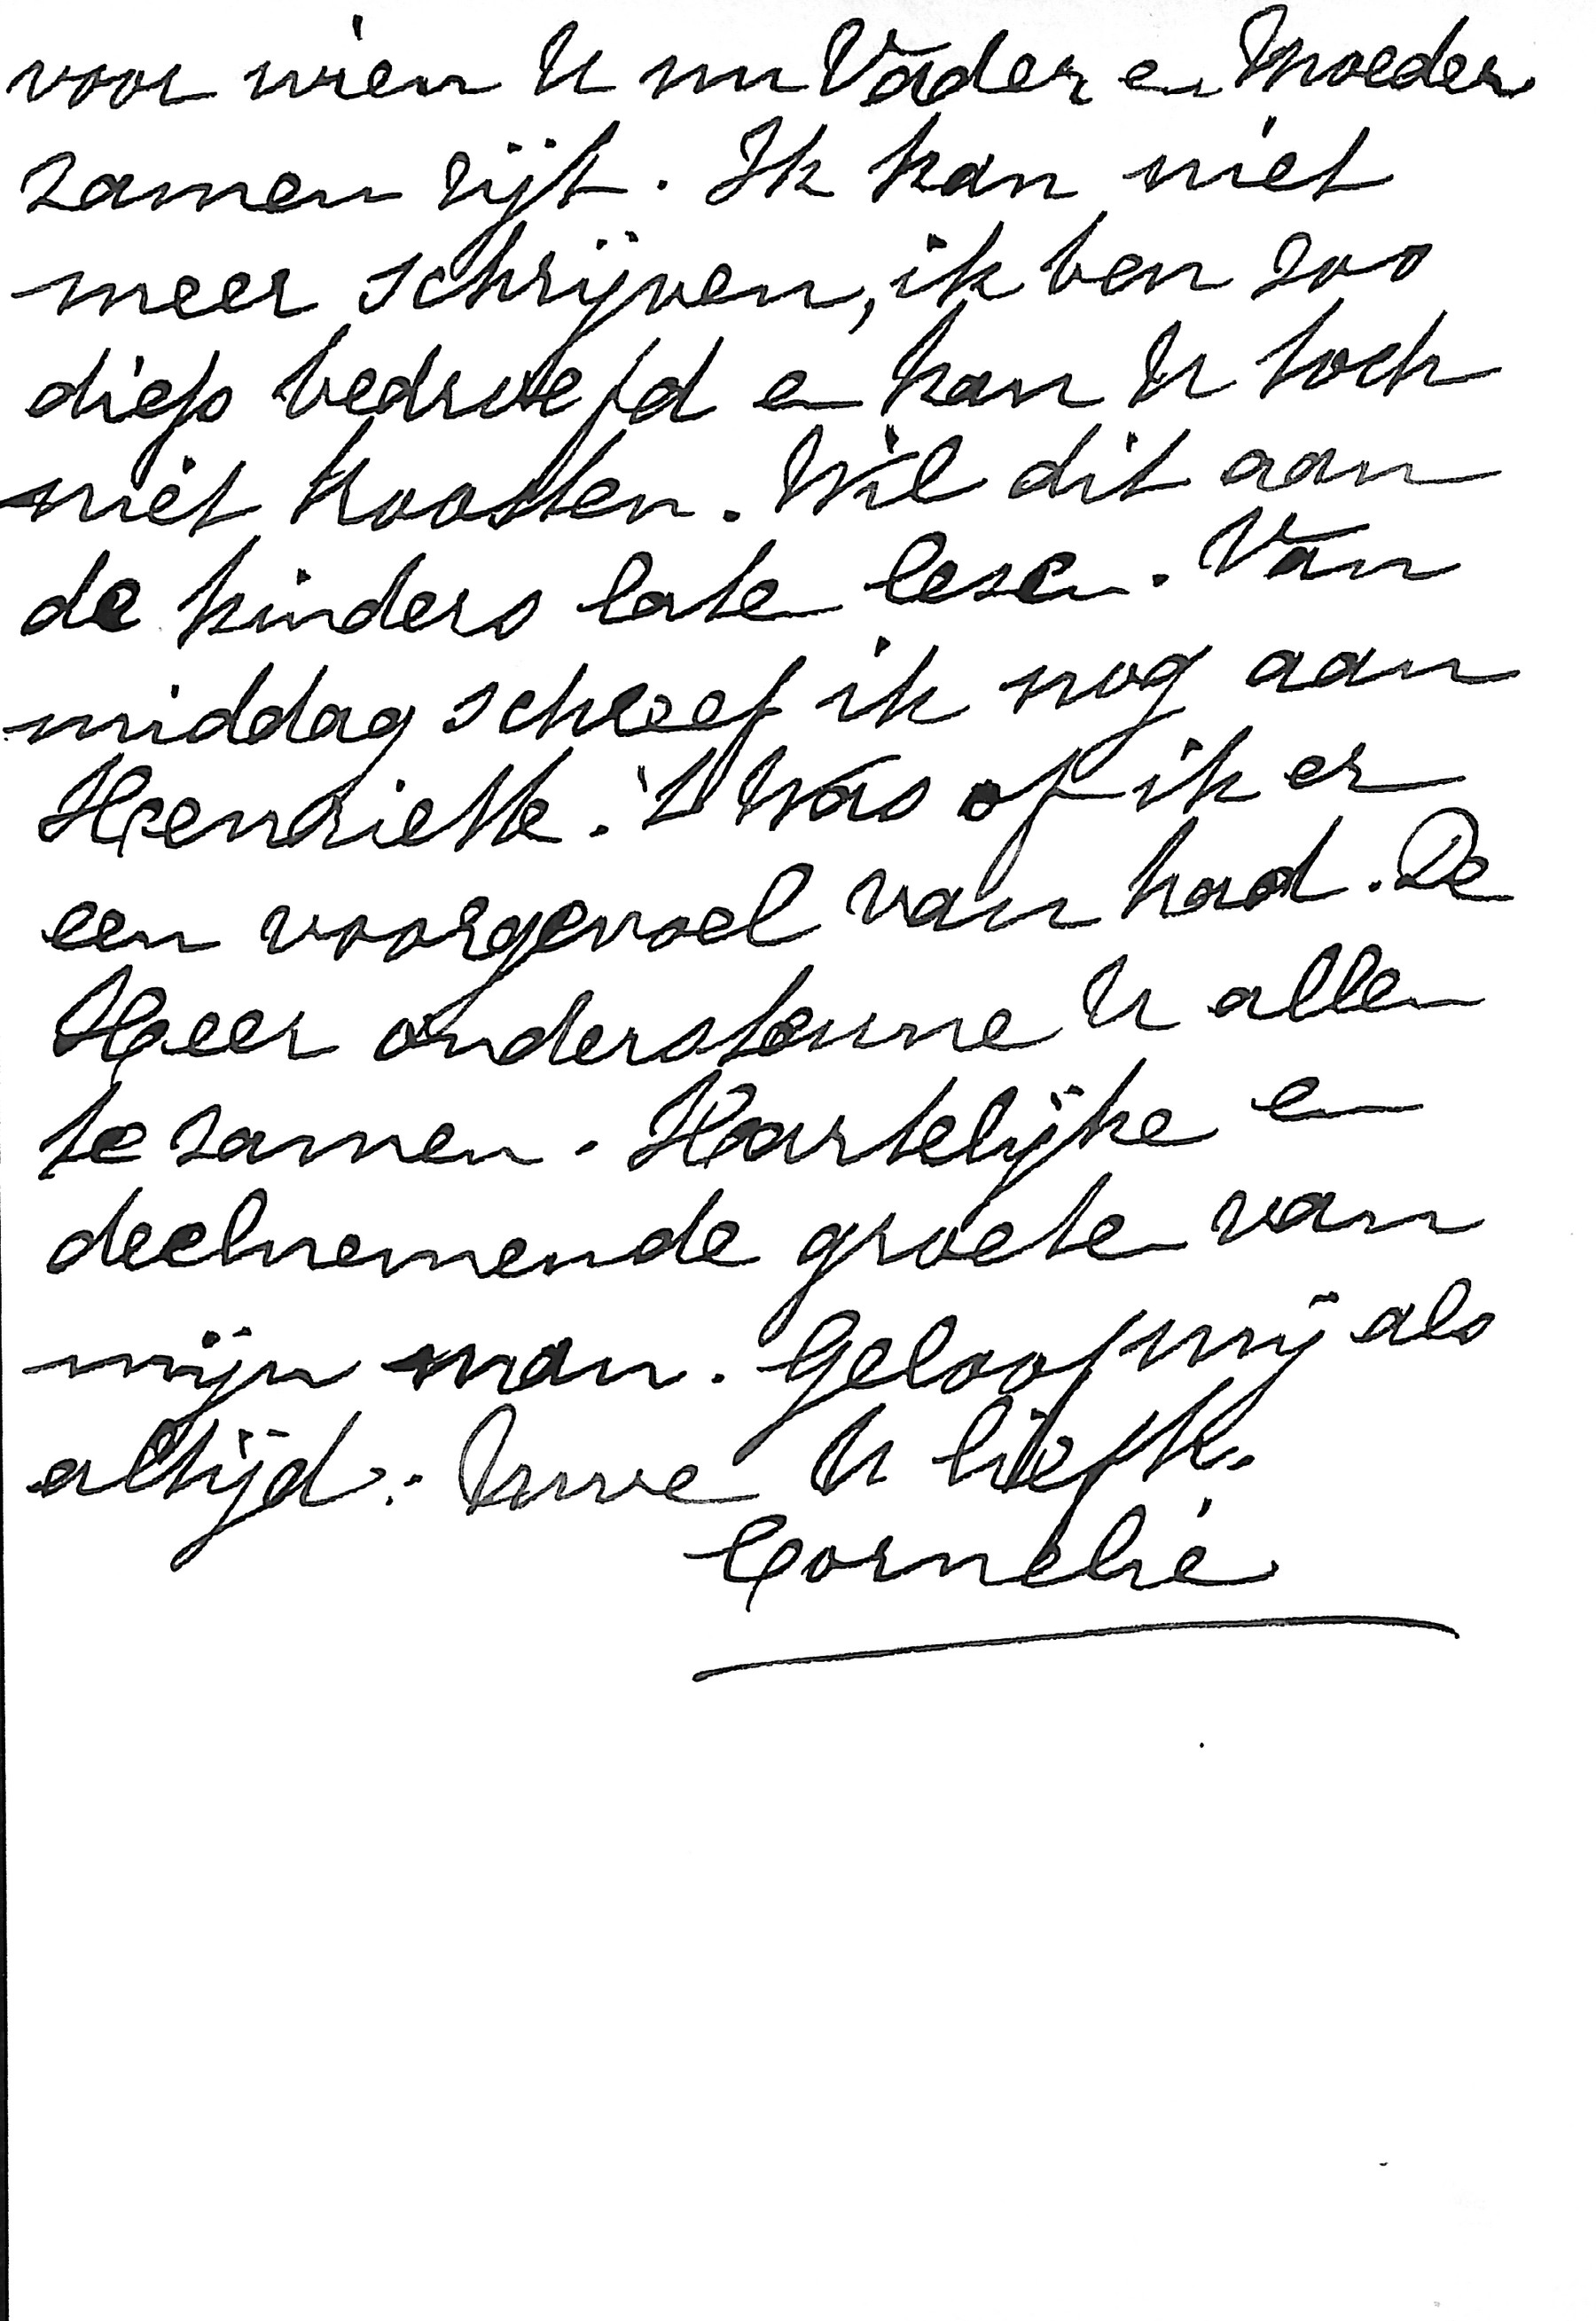 voor wien U nu Vader en Moeder
zamen zijt. Ik kan niet
meer schrijven, ik ben zoo
diep bedroefd en kan U toch
niet troosten. Wil dit aan
de kinders laten lesen. Van
middag schreef ik nog aan
Henriette. 't Was of ik er
een voorgevoel van had. De
Heer ondersteune U allen
te zamen. Hartelijke en
deelnemende groeten van
mijn man. Geloof mij als
altijd: Uwe U liefh.
Cornelie